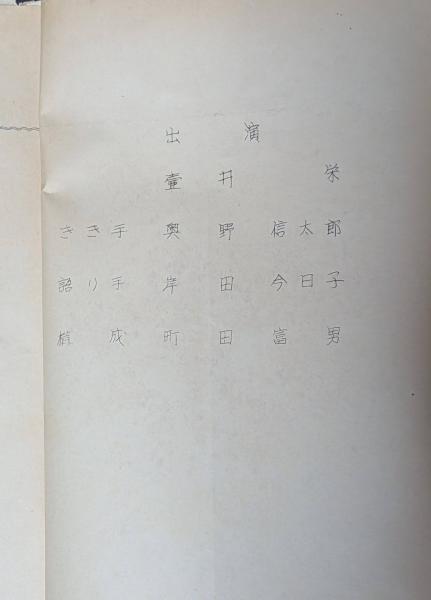 出 演
壷 井 栄
きき手 奥野 信太郎
語り手 岸田 今日子
構成 町田 富男